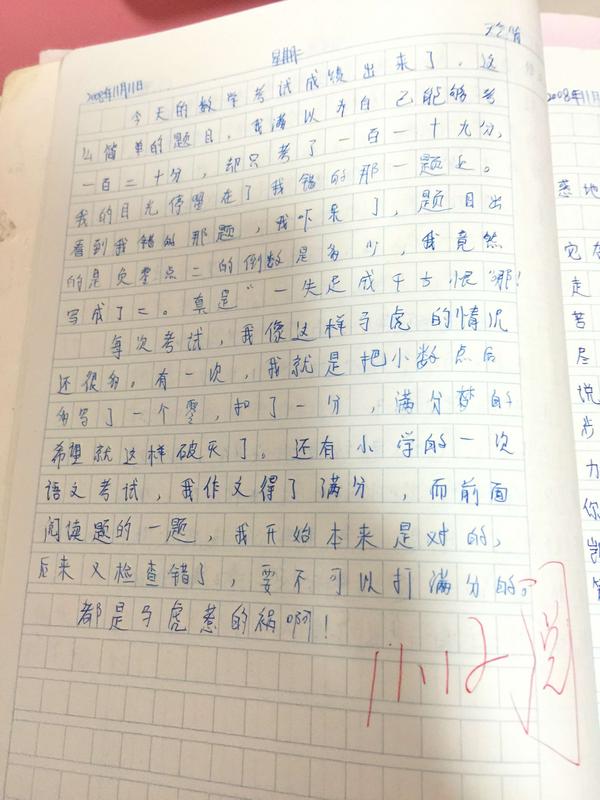 2008年11月11日
星期二
今天的数学考试成绩出来了，这
么简单的题目，我满以为自己能够考
一百二十分，却只考了一百一十九分，
我的目光停留在了我错的那一题上。
看到我错的那题，我吓呆了，题目出
的是负零点二的倒数是多少，我竟然
写成了二。真是“一失足成千古恨”哪！
每次考试，我像这样马虎的情况
还很多。有一次，我就是把小数点后
多写了一个零，扣了一分，满分梦的
希望就这样破灭了。还有小学的一次
语文考试，我作文得了满分，而前面
阅读题的一题，我开始本来是对的，
后来又检查错了，要不可以打满分的。
都是马虎惹的祸啊！
11.12 阅
2008年11月
惹地
它在
走
苦
尽
说
步
力
你